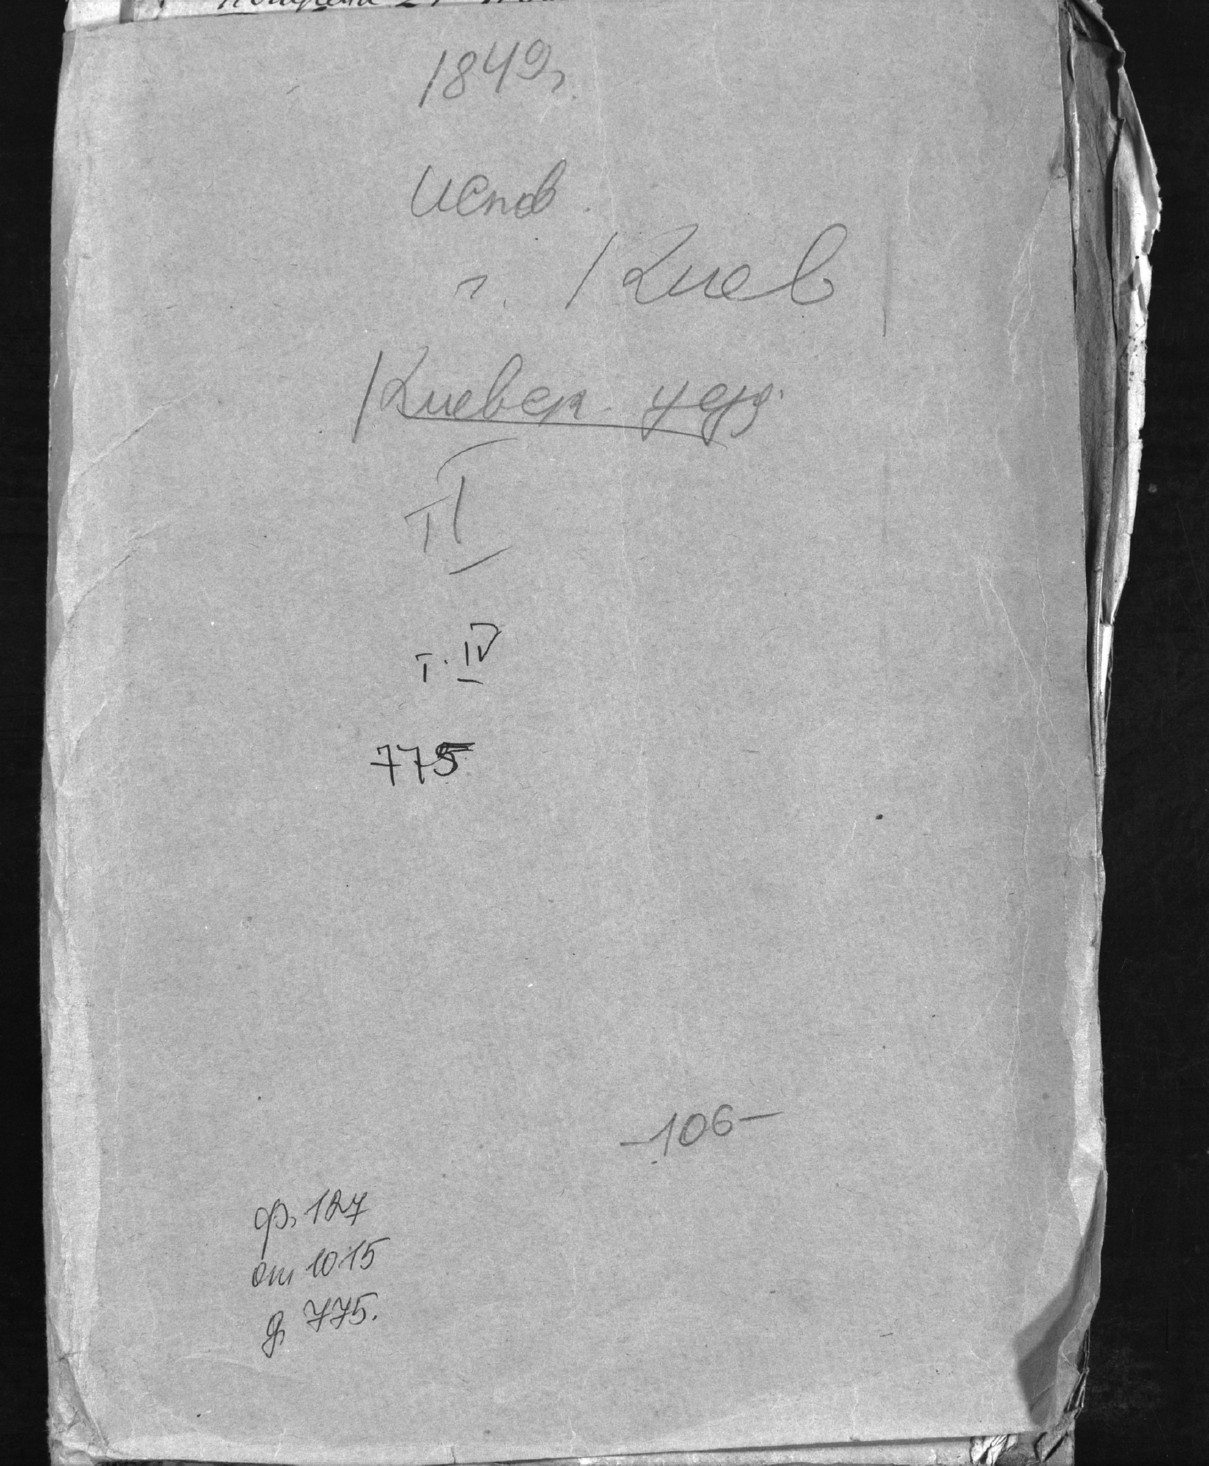 1849г.
испов.
г. Киев
Киевск. уезд.
т. IV
775
-106-
ф. 127
оп 1015
д. 775.